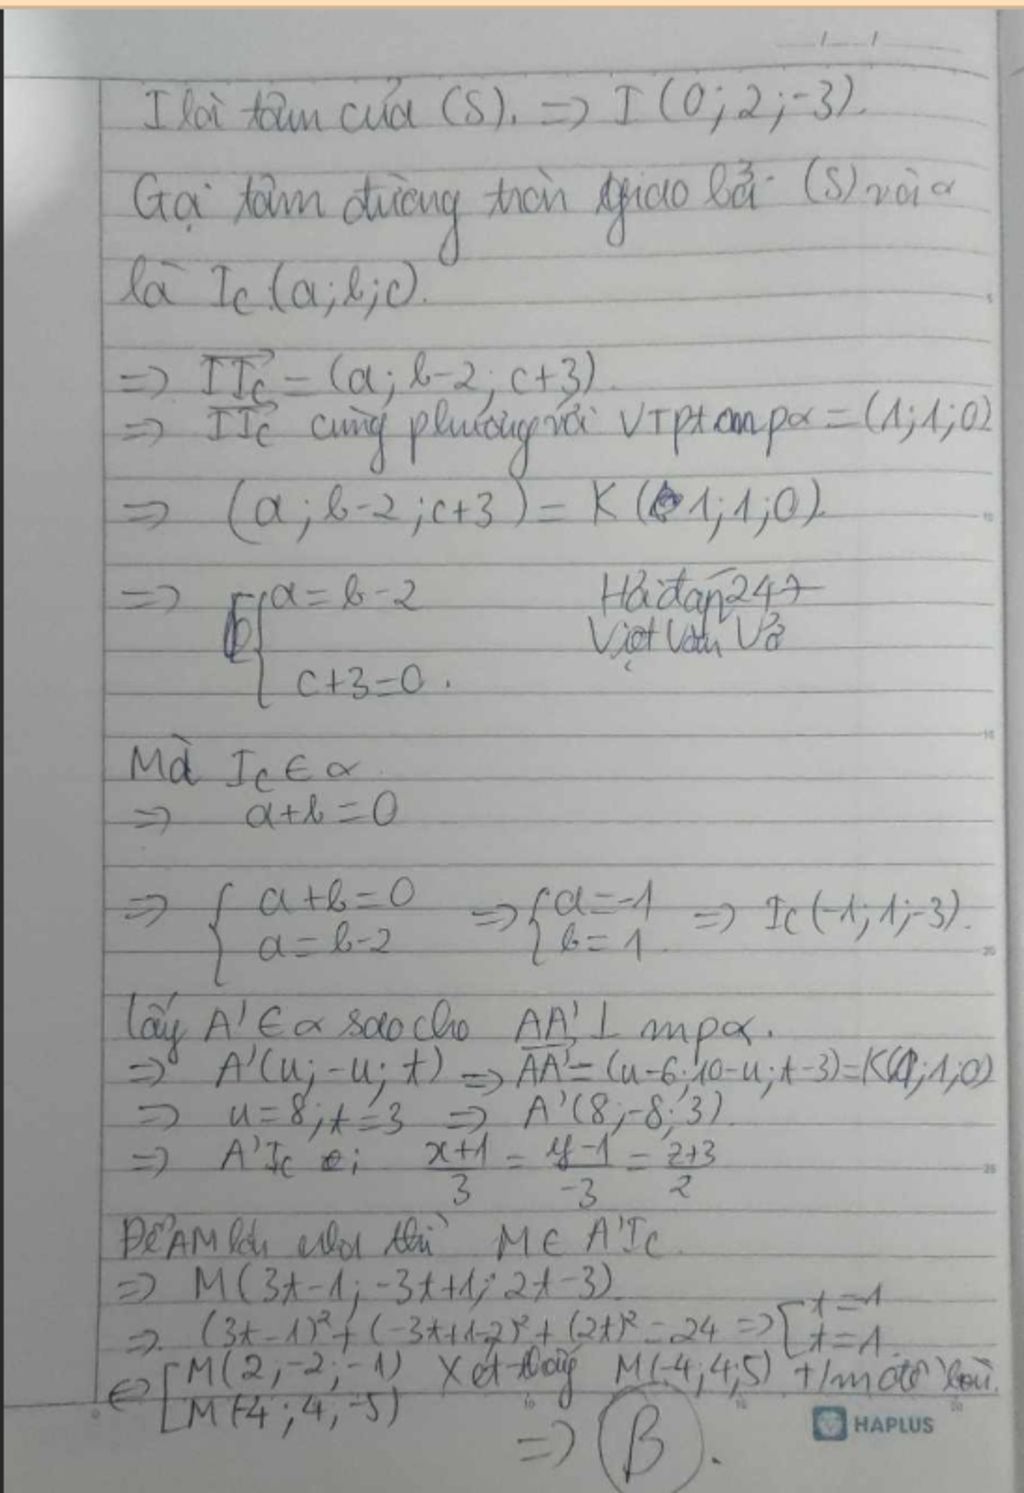 I là tâm của (S). => I (0; 2; -3).
Gọi tâm đường tròn giao bởi (S) với α
là Ic (a; b; c).
=> IIc = (a; b-2; c+3)
=> IIc cùng phương với VTpt mpα = (1; 1; 0)
=> (a; b-2; c+3) = K (1; 1; 0).
=> { a = b-2
c+3=0.
Hỏi đáp 247
Việt Văn Võ
Mà Ic ∈ α
=> a+b=0
=> { a+b=0 => { a=-1 => Ic (-1; 1; -3).
a=b-2 b=1
lấy A' ∈ α sao cho AA' ⊥ mpα.
=> A'(u; -u; t) => AA' = (u-6; 10-u; t-3) = K(1; 1; 0)
=> u=8; t=3 => A'(8; -8; 3)
=> A'Ic : x+1/3 = y-1/-3 = z+3/2
Để AM lớn nhất thì M ∈ A'Ic
=> M(3t-1; -3t+1; 2t-3)
=> (3t-1)² + (-3t+1-2)² + (2t)² = 24 => [ t=-1
t=1
<=> [ M(2; -2; -1) Xét thấy M(-4; 4; 5) t/m đề bài.
M(-4; 4; -5)
=> B.
HAPLUS